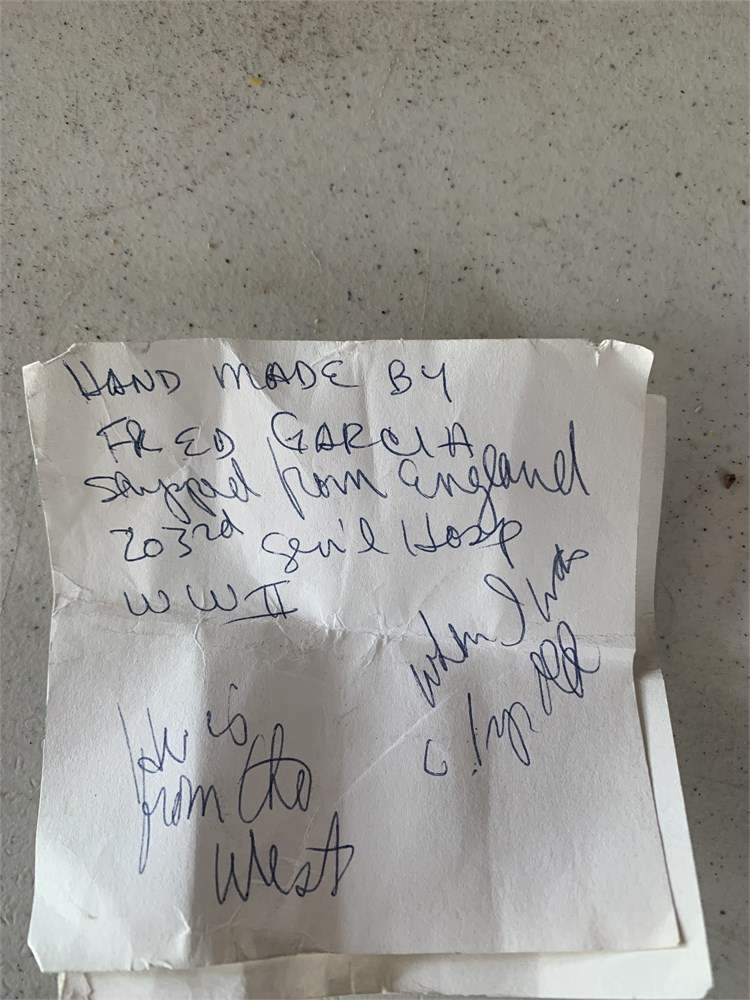 HAND MADE BY
FRED GARCIA
from England
203rd Gen'l Hosp
WW II
when I was
c. 1 yr old
He is
from the
West